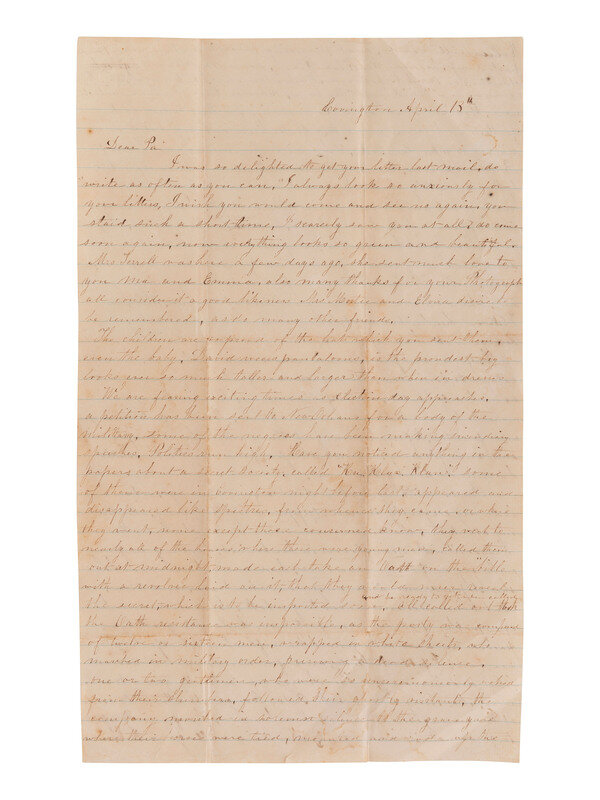 Covington April 13th
Dear Pa
I was so delighted to get your letter last mail, do
write as often as you can, I always look so anxiously for
your letters, I wish you would come and see us again, you
staid such a short time, I scarcely saw you at all, do come
soon again, now everything looks so green and beautiful.
Mrs Terrell was here a few days ago, she sent much love to
you and Emma, also many thanks for your Photograph
all consider it a good likeness and desire to
be remembered, as do many other friends.
The children are so proud of the hats which you sent them,
even the baby. David pantaloons, is the proudest
looks ever so much taller and larger than when in dresses
We are fearing exciting times as election day approaches.
a petition has been sent to New Orleans for a body of the
military, some of the negroes have been making incendiary
speeches. Politics run high. Have you noticed anything in the
papers about a secret society called "Ku Klux Klan" some
of them were in Covington night before last, appeared and
disappeared like spectres, from whence they came, or where
they went, none except those concerned know, they went to
nearly all of the houses where there were young men, called them
out at midnight, made each take an Oath on the "bible
with a revolver laid on it, that they would never reveal
the secret, which is to be imparted soon, all called on took
the Oath resistance was impossible, as the party was composed
of twelve or sixteen men, wrapped in white sheets, who
marched in military order, preserving a dead silence
one or two gentlemen, who were
from their followed their ghostly visitants, the
company marched in to the grave yard
where their horses were tied, mounted and rode up the